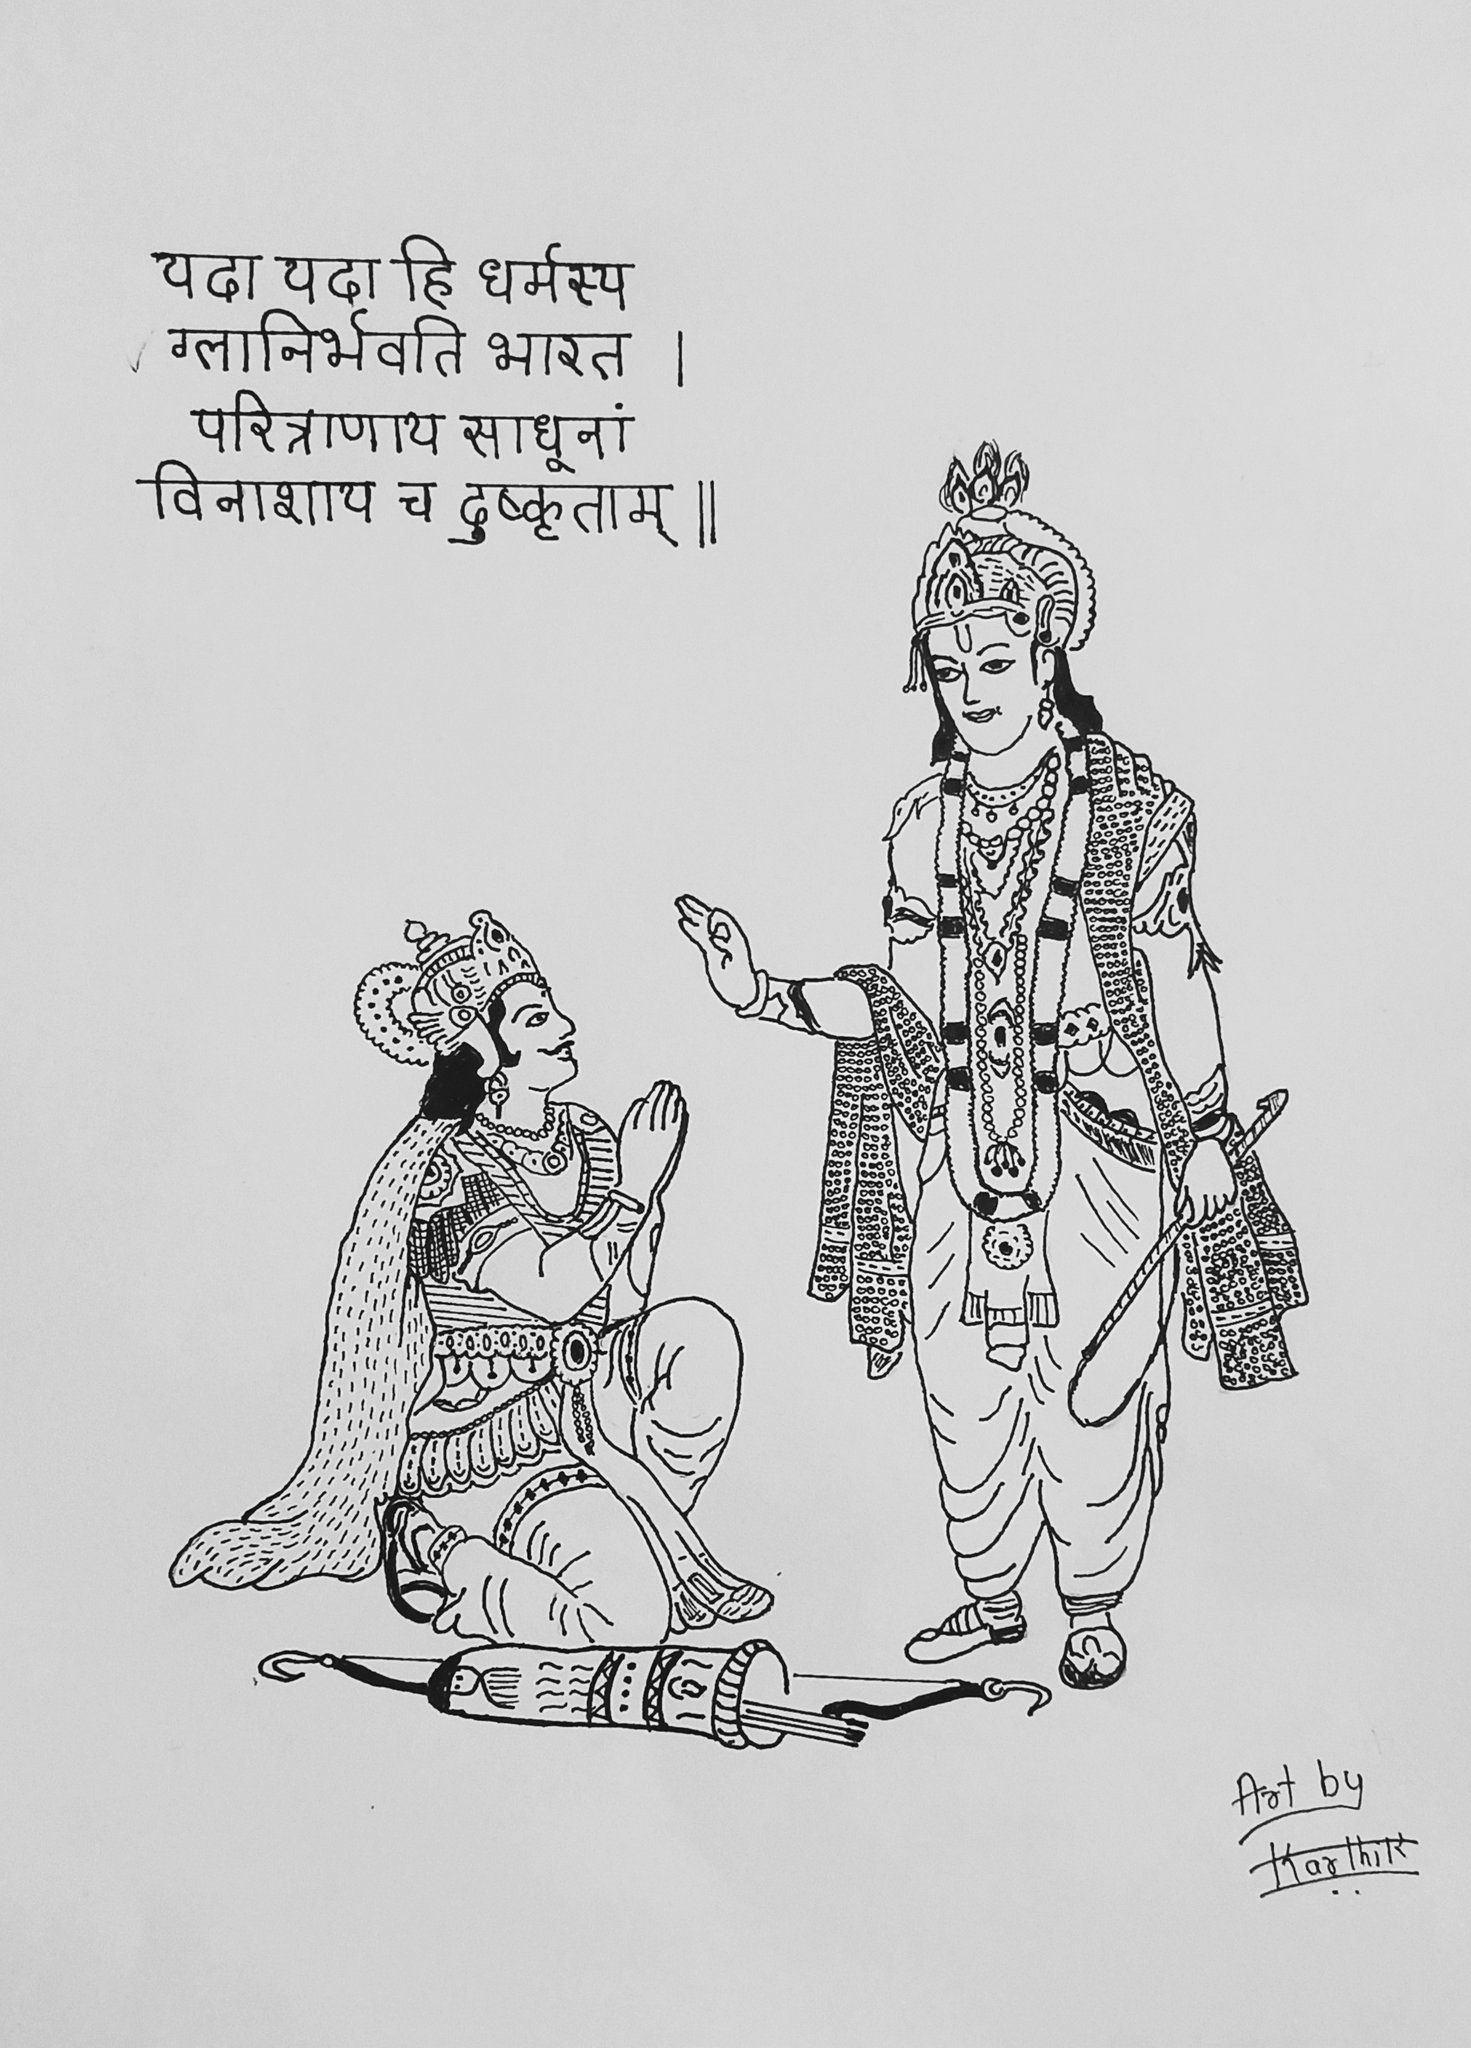 यदा यदा हि धर्मस्य
ग्लानिर्भवति भारत ।
परित्राणाय साधूनां
विनाशाय च दुष्कृताम् ॥
Art by
Karthik